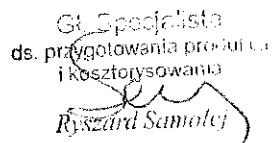 Gł. Specjalista
ds. przygotowania produkcji
i kosztorysowania
Ryszard Samolej